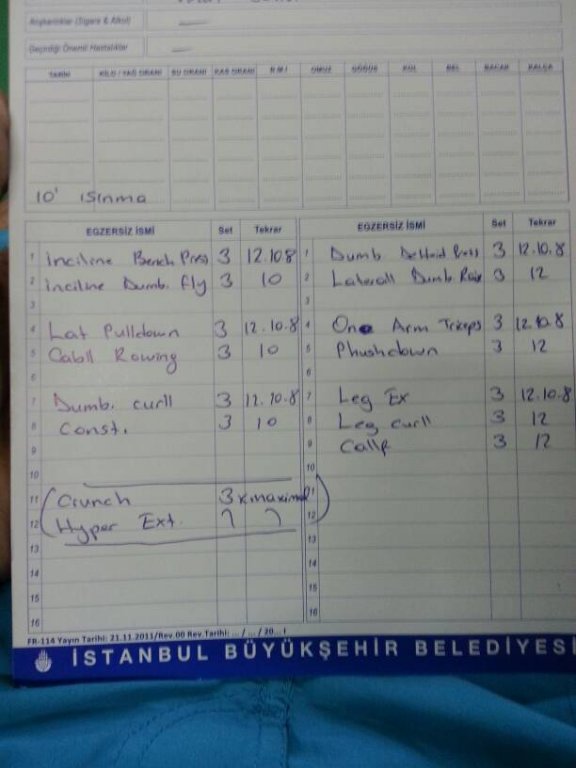 Alışkanlıklar (Sigara & Alkol)
Geçirdiği Önemli Hastalıklar
TARİH KİLO / YAĞ ORANI SU ORANI KAS ORANI B.M.I OMUZ GÖĞÜS KOL BEL BASEN KALÇA
10' ısınma
EGZERSİZ İSMİ Set Tekrar
1 Inciline Bench Press 3 12.10.8
2 Inciline Dumb. fly 3 10
3
4 Lat Pulldown 3 12.10.8
5 Cabll Rowing 3 10
6
7 Dumb. curll 3 12.10.8
8 Const. 3 10
9
10
11 Crunch 3 x maximal
12 Hyper Ext.
13
14
15
16
EGZERSİZ İSMİ Set Tekrar
1 Dumb Deltoid Press 3 12.10.8
2 Laterall Dumb Raise 3 12
3
4 One Arm Triceps 3 12.10.8
5 Phushdown 3 12
6
7 Leg Ex 3 12.10.8
8 Leg curll 3 12
9 Callf 3 12
10
11
12
13
14
15
16
FR-114 Yayın Tarihi: 21.11.2011/Rev.00 Rev.Tarihi: ... / ... / 20...
İSTANBUL BÜYÜKŞEHİR BELEDİYESİ